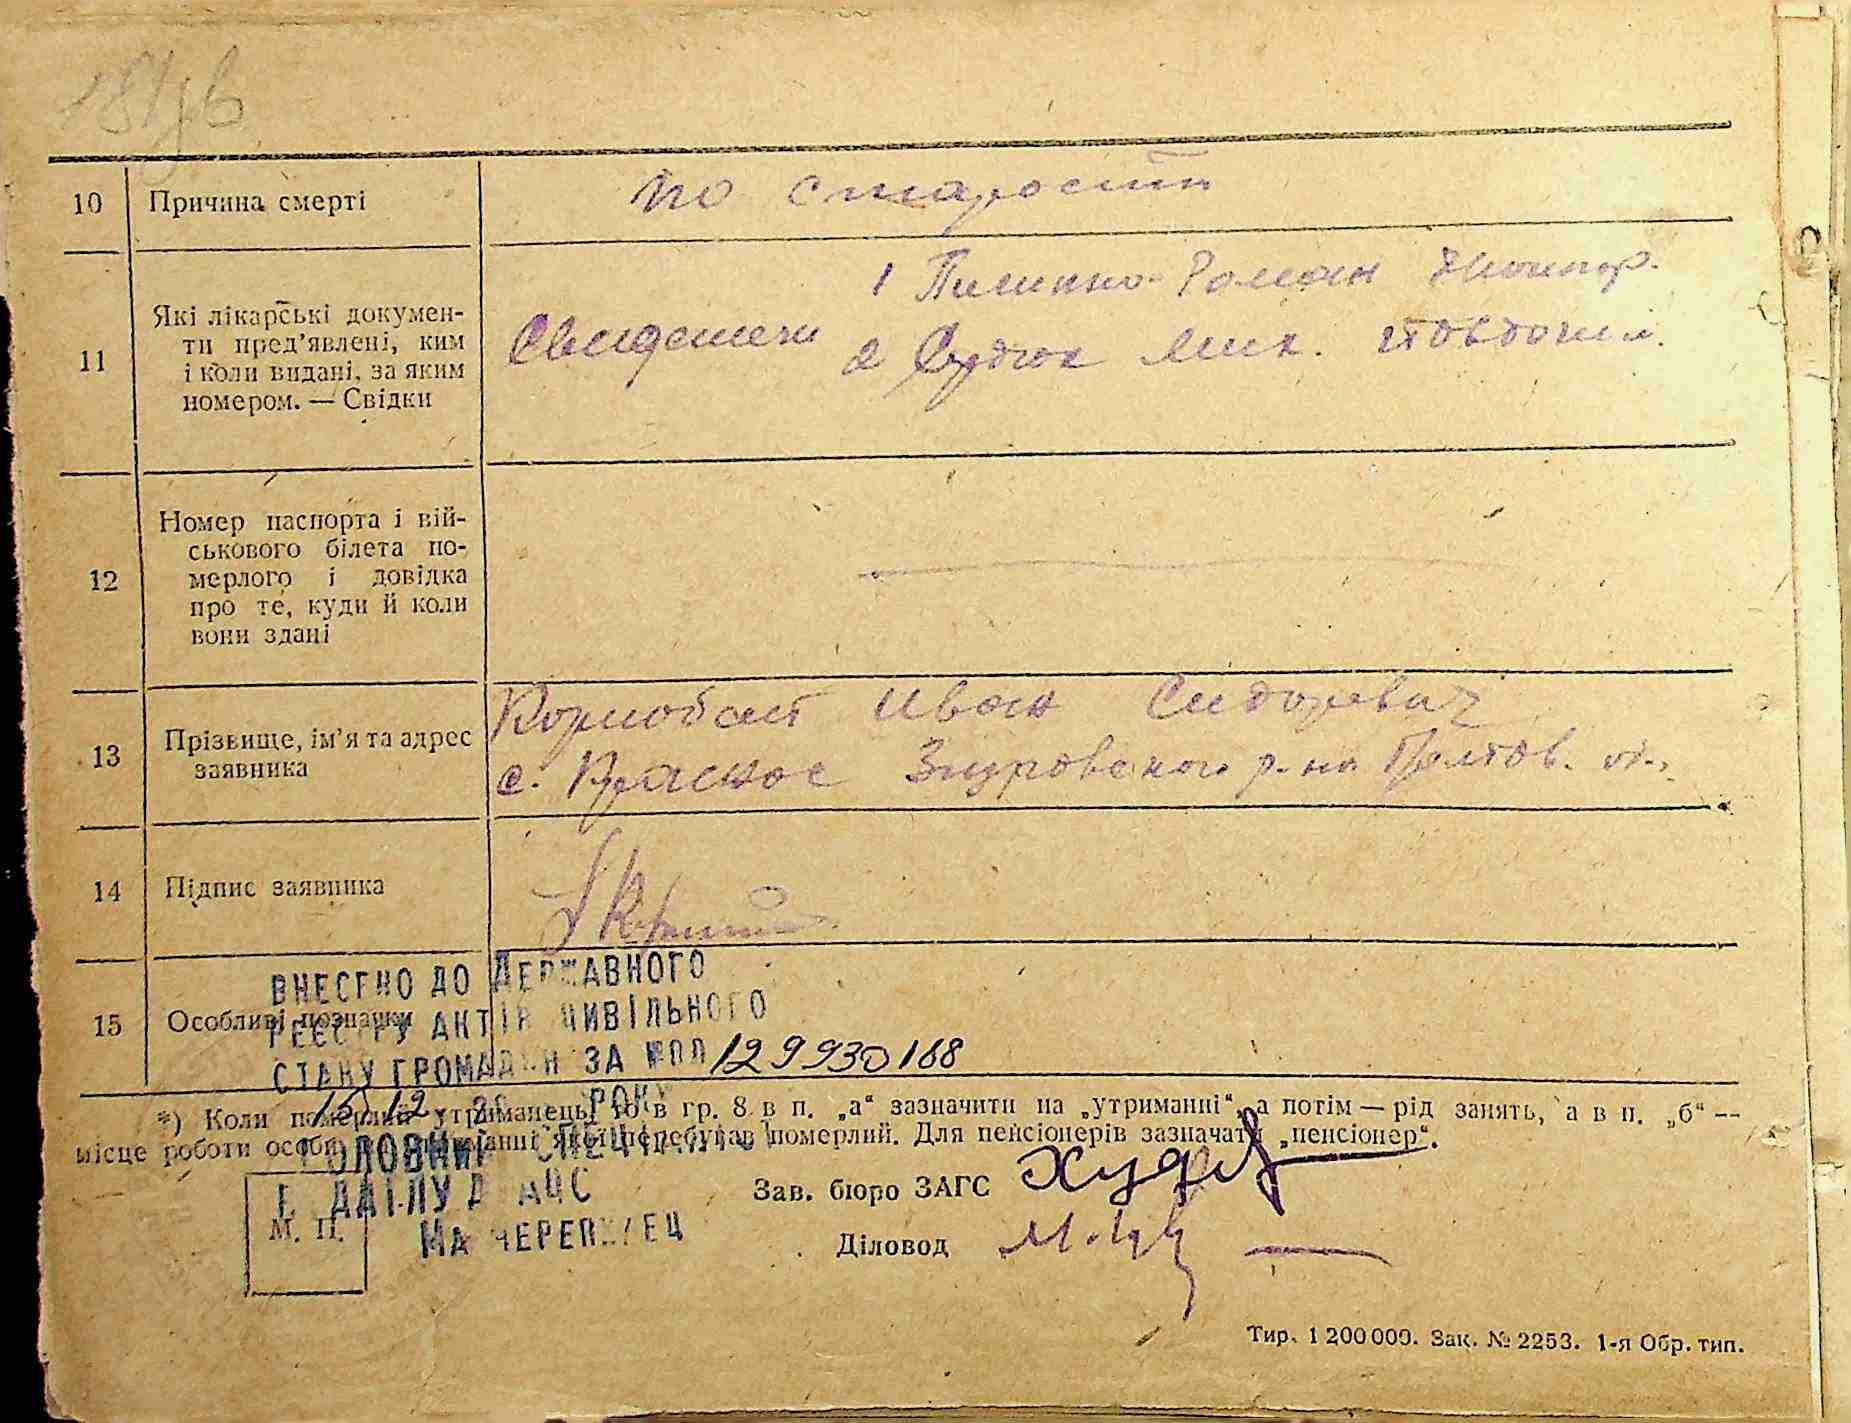 10 Причина смерті по старости
11 Які лікарські докумен-
ти пред'явлені, ким
і коли видані, за яким
номером. — Свідки
1 Роман
Свидетели 2
12 Номер паспорта і вій-
ськового білета по-
мерлого і довідка
про те, куди й коли
вони здані
13 Прізвище, ім'я та адрес
заявника
Иван Сидорович
с. Красное Згуровского р-на Полтов.
14 Підпис заявника
15 Особливі позначки
ВНЕСЕНО ДО ДЕРЖАВНОГО
РЕЄСТРУ АКТІВ ЦИВІЛЬНОГО
СТАНУ ГРОМАДЯН ЗА №00 129930168
15 12 РОКУ
*) Коли померлий утриманець, то в гр. 8 в п. „а“ зазначити на „утриманні“, а потім — рід занять, а в п. „б“ —
місце роботи особи, на утриманні якої перебував померлий. Для пенсіонерів зазначати „пенсіонер“.
ГОЛОВНИЙ СПЕЦІАЛІСТ
М. П.
ЧЕРЕПИНЕЦ
Зав. бюро ЗАГС
Діловод
Тир. 1 200 000. Зак. № 2253. 1-я Обр. тип.